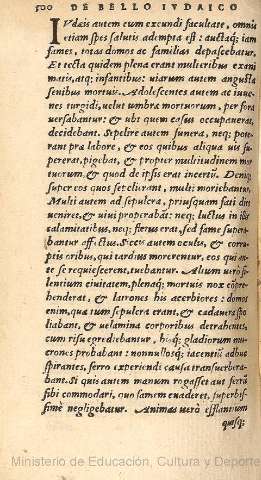 500 DE BELLO IVDAICO
IVdæis autem cum exeundi facultate, omnis
etiam spes salutis adempta est: auctaq; iam
fames, totas domos ac familias depascebatur.
Et tecta quidem plena erant mulieribus exani
matis, atq; infantibus: viarum autem angusta
senibus mortuis. Adolescentes autem ac iuue-
nes turgidi, velut umbræ mortuorum, per fora
versabantur: & ubi quem casus occupauerat,
decidebant. Sepelire autem funera, neq; pote-
rant præ labore, & eos quibus aliqua vis su-
pererat, pigebat, & propter multitudinem mor
tuorum & quod de ipsis erat incertum. Deniq;
super eos quos sepelirent, multi moriebantur.
Multi autem ad sepulcra, priusquam fati dies
veniret, & viui properabāt: neq; luctus in ibi
calamitatibus, neq; fletus erat, sed fame supera-
bantur affectus. Siccis autem oculis, & corru-
ptis oribus, qui tardius morerentur, eos qui an-
te se requiescerent, tuebantur. Altum uerò si-
lentium ciuitatem, plenaq; mortuis nox cōpre-
henderat, & latrones his acerbiores: domos
enim, quæ tum sepulcra erant, & cadauera spo
liabant, & uelamina corporibus detrahentes,
cum risu egrediebantur, hisq; gladiorum mu-
crones probabant: nonnullosq; iacentiū adhuc
spirantes, ferro experiendi causa transuerbera-
bant. Si quis autem manum rogasset aut ferrū
sibi commodari, quo famem euaderet, superbis-
simè negligebatur. Animas uerò efflantium
quisq;
Ministerio de Educación, Cultura y Deporte